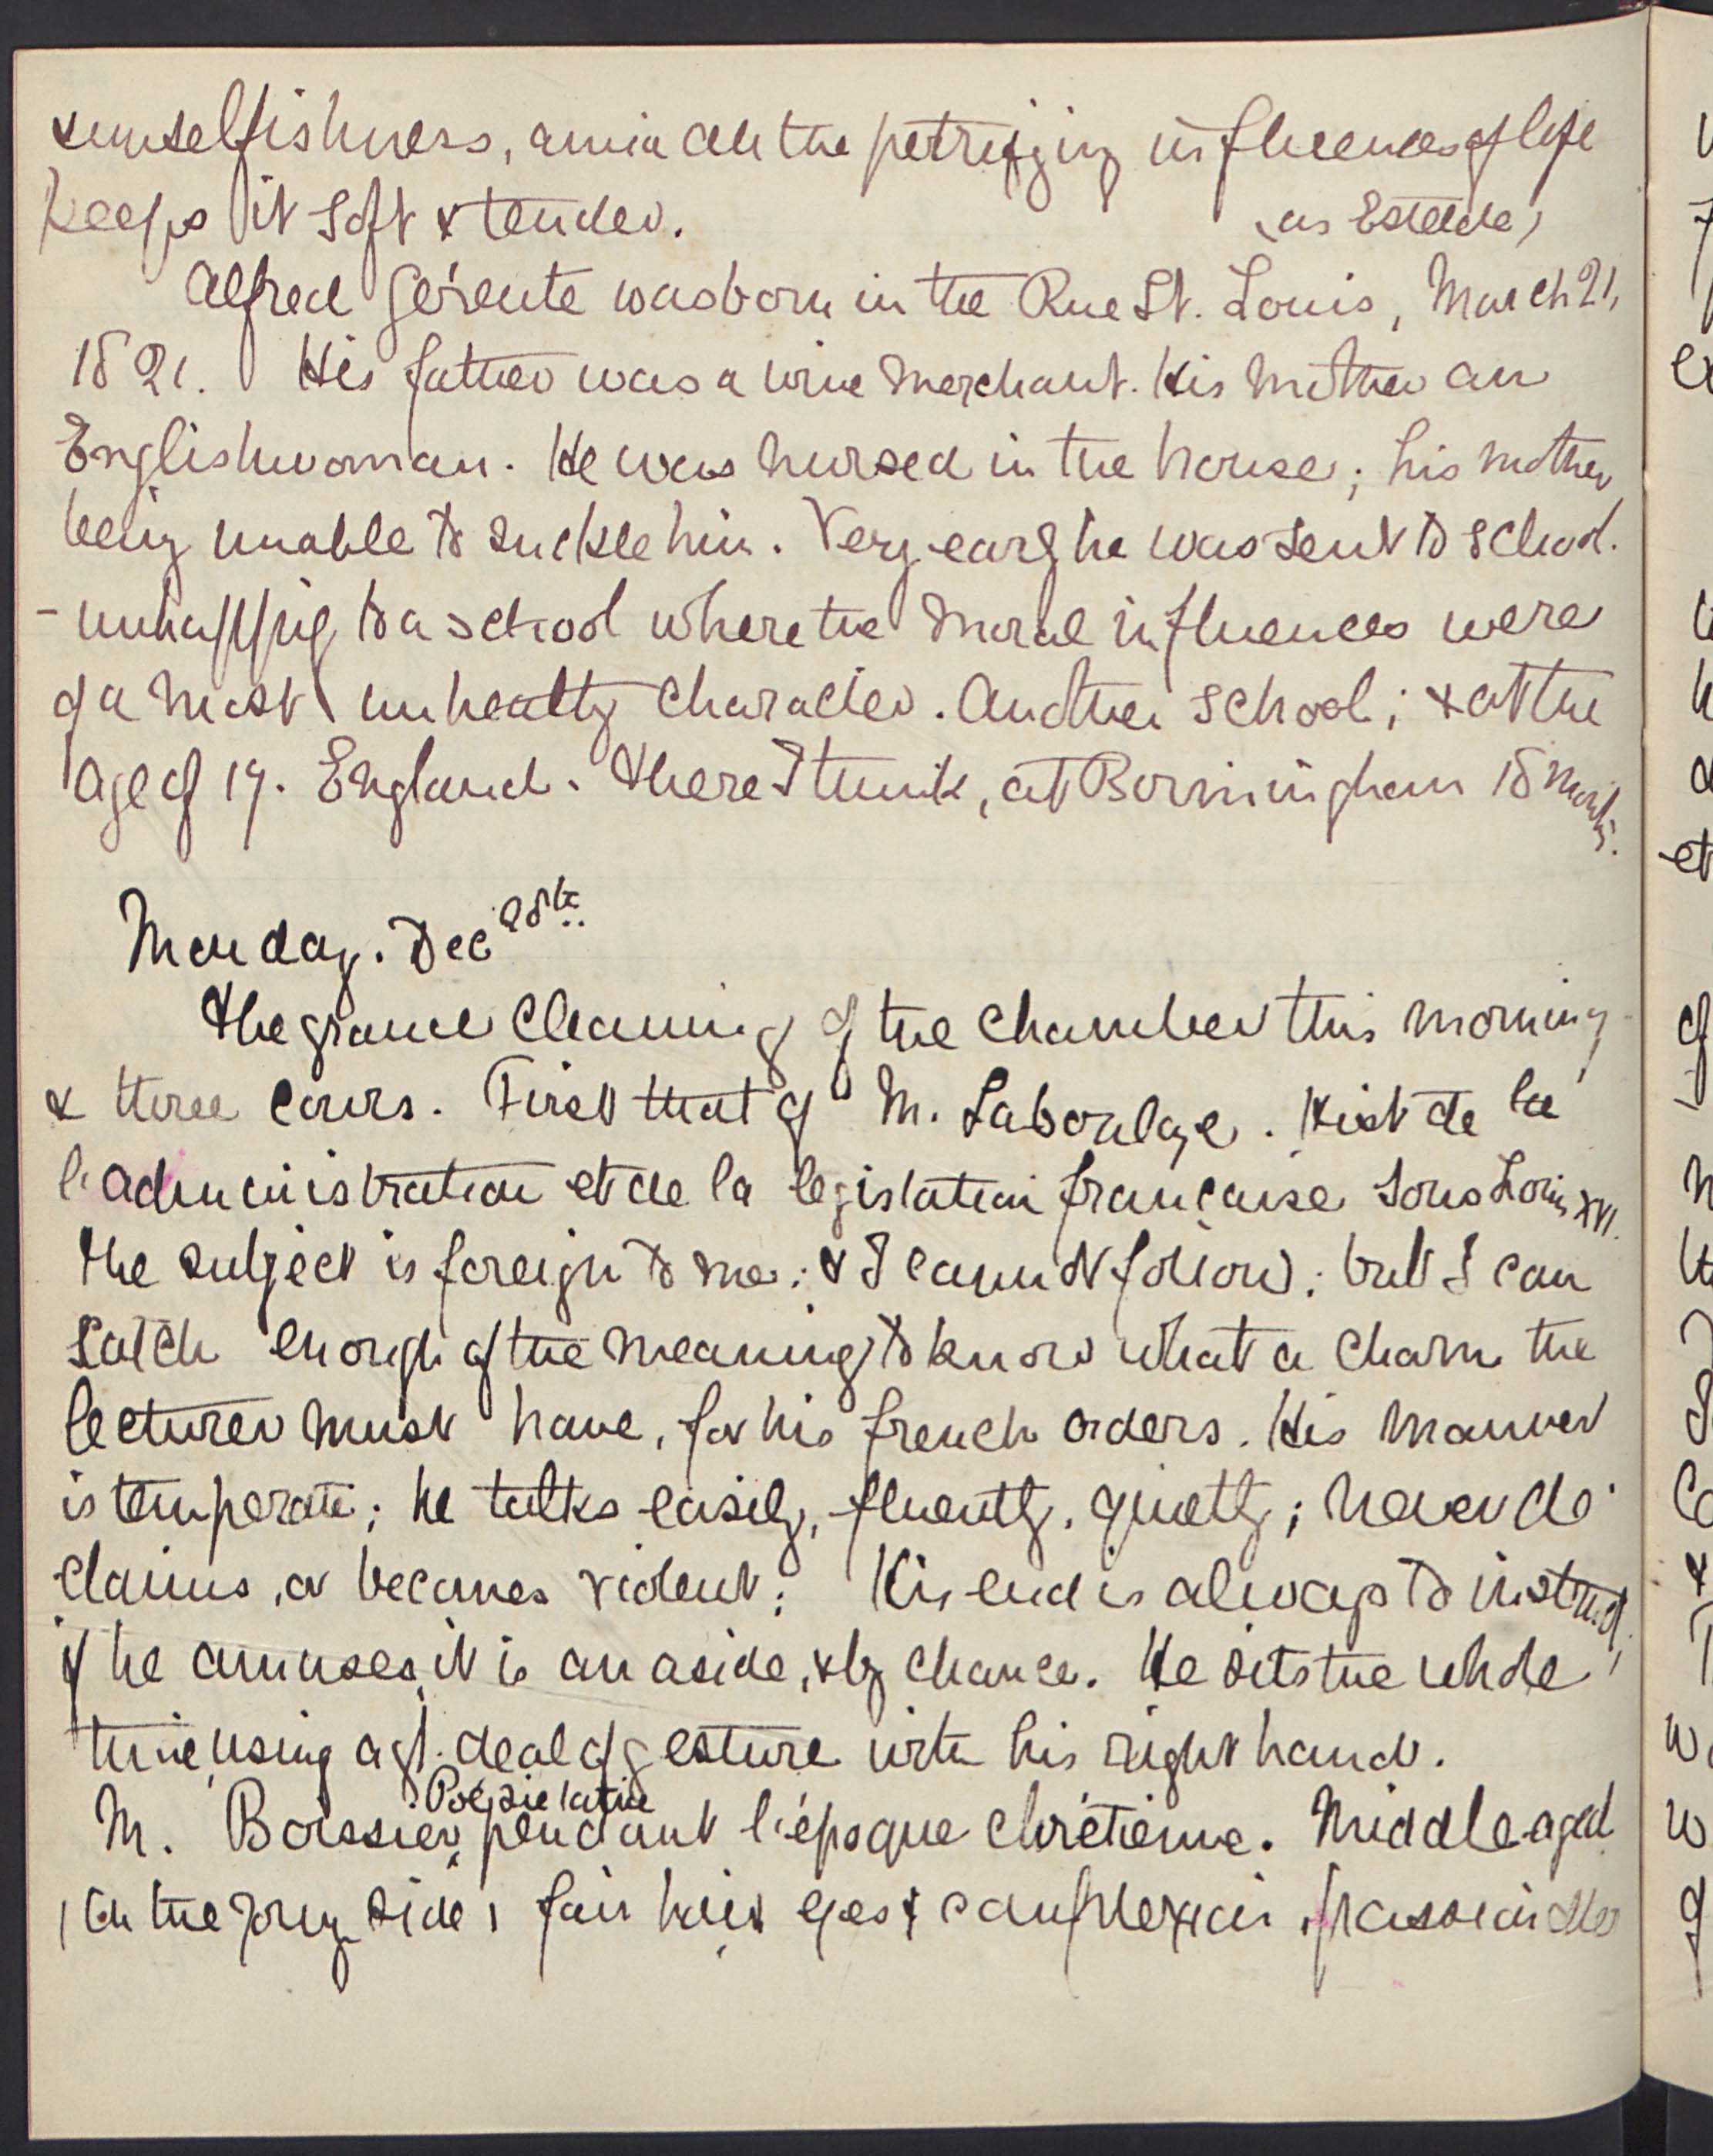 & unselfishness, amid all the petrifying influences of life
keeps it soft & tender.
(as Estelle)
Alfred Gérente was born in the Rue St. Louis, March 21,
1821. His father was a wine merchant. His mother an
Englishwoman. He was nursed in the house; his mother
being unable to suckle him. Very early he was sent to school.
- unhappily to a school where the moral influences were
of a most unhealthy character. Another school; & at the
age of 17. England. There I think, at Birmingham 18 months.
Monday. Dec 28th.
The grand cleaning of the chamber this morning
& three cours. First that of M. Laboulaye. Hist de la
l'administration et de la legislation française sous Louis XVI.
The subject is foreign to me; & I cannot follow; but I can
catch enough of the meaning to know what a charm the
lecturer must have, for his french orders. His manner
is temperate; he talks easily, fluently, quietly; never de
claims, or becomes violent; His end is always to instruct;
if he amuses, it is an aside, & by chance. He sits the whole
time, using a gt. deal of gesture with his right hand.
Poésie latine
M. Boissier, pendant l'époque chrétienne. Middle aged
(on the young side) fair hair eyes & complexion, passionate